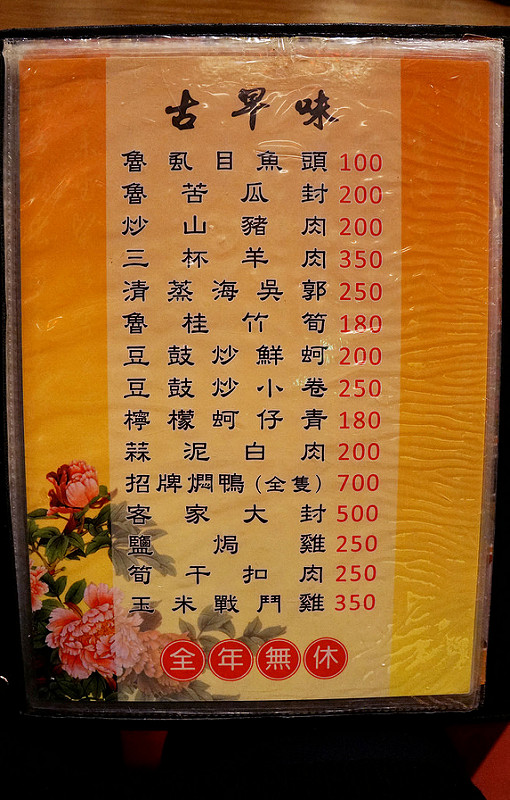 古早味
魯虱目魚頭 100
魯苦瓜封 200
炒山豬肉 200
三杯羊肉 350
清蒸海吳郭 250
魯桂竹筍 180
豆鼓炒鮮蚵 200
豆鼓炒小卷 250
檸檬蚵仔青 180
蒜泥白肉 200
招牌燜鴨(全隻) 700
客家大封 500
鹽焗雞 250
筍干扣肉 250
玉米戰鬥雞 350
全年無休